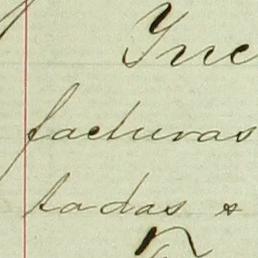 Ync
facturas
tadas &